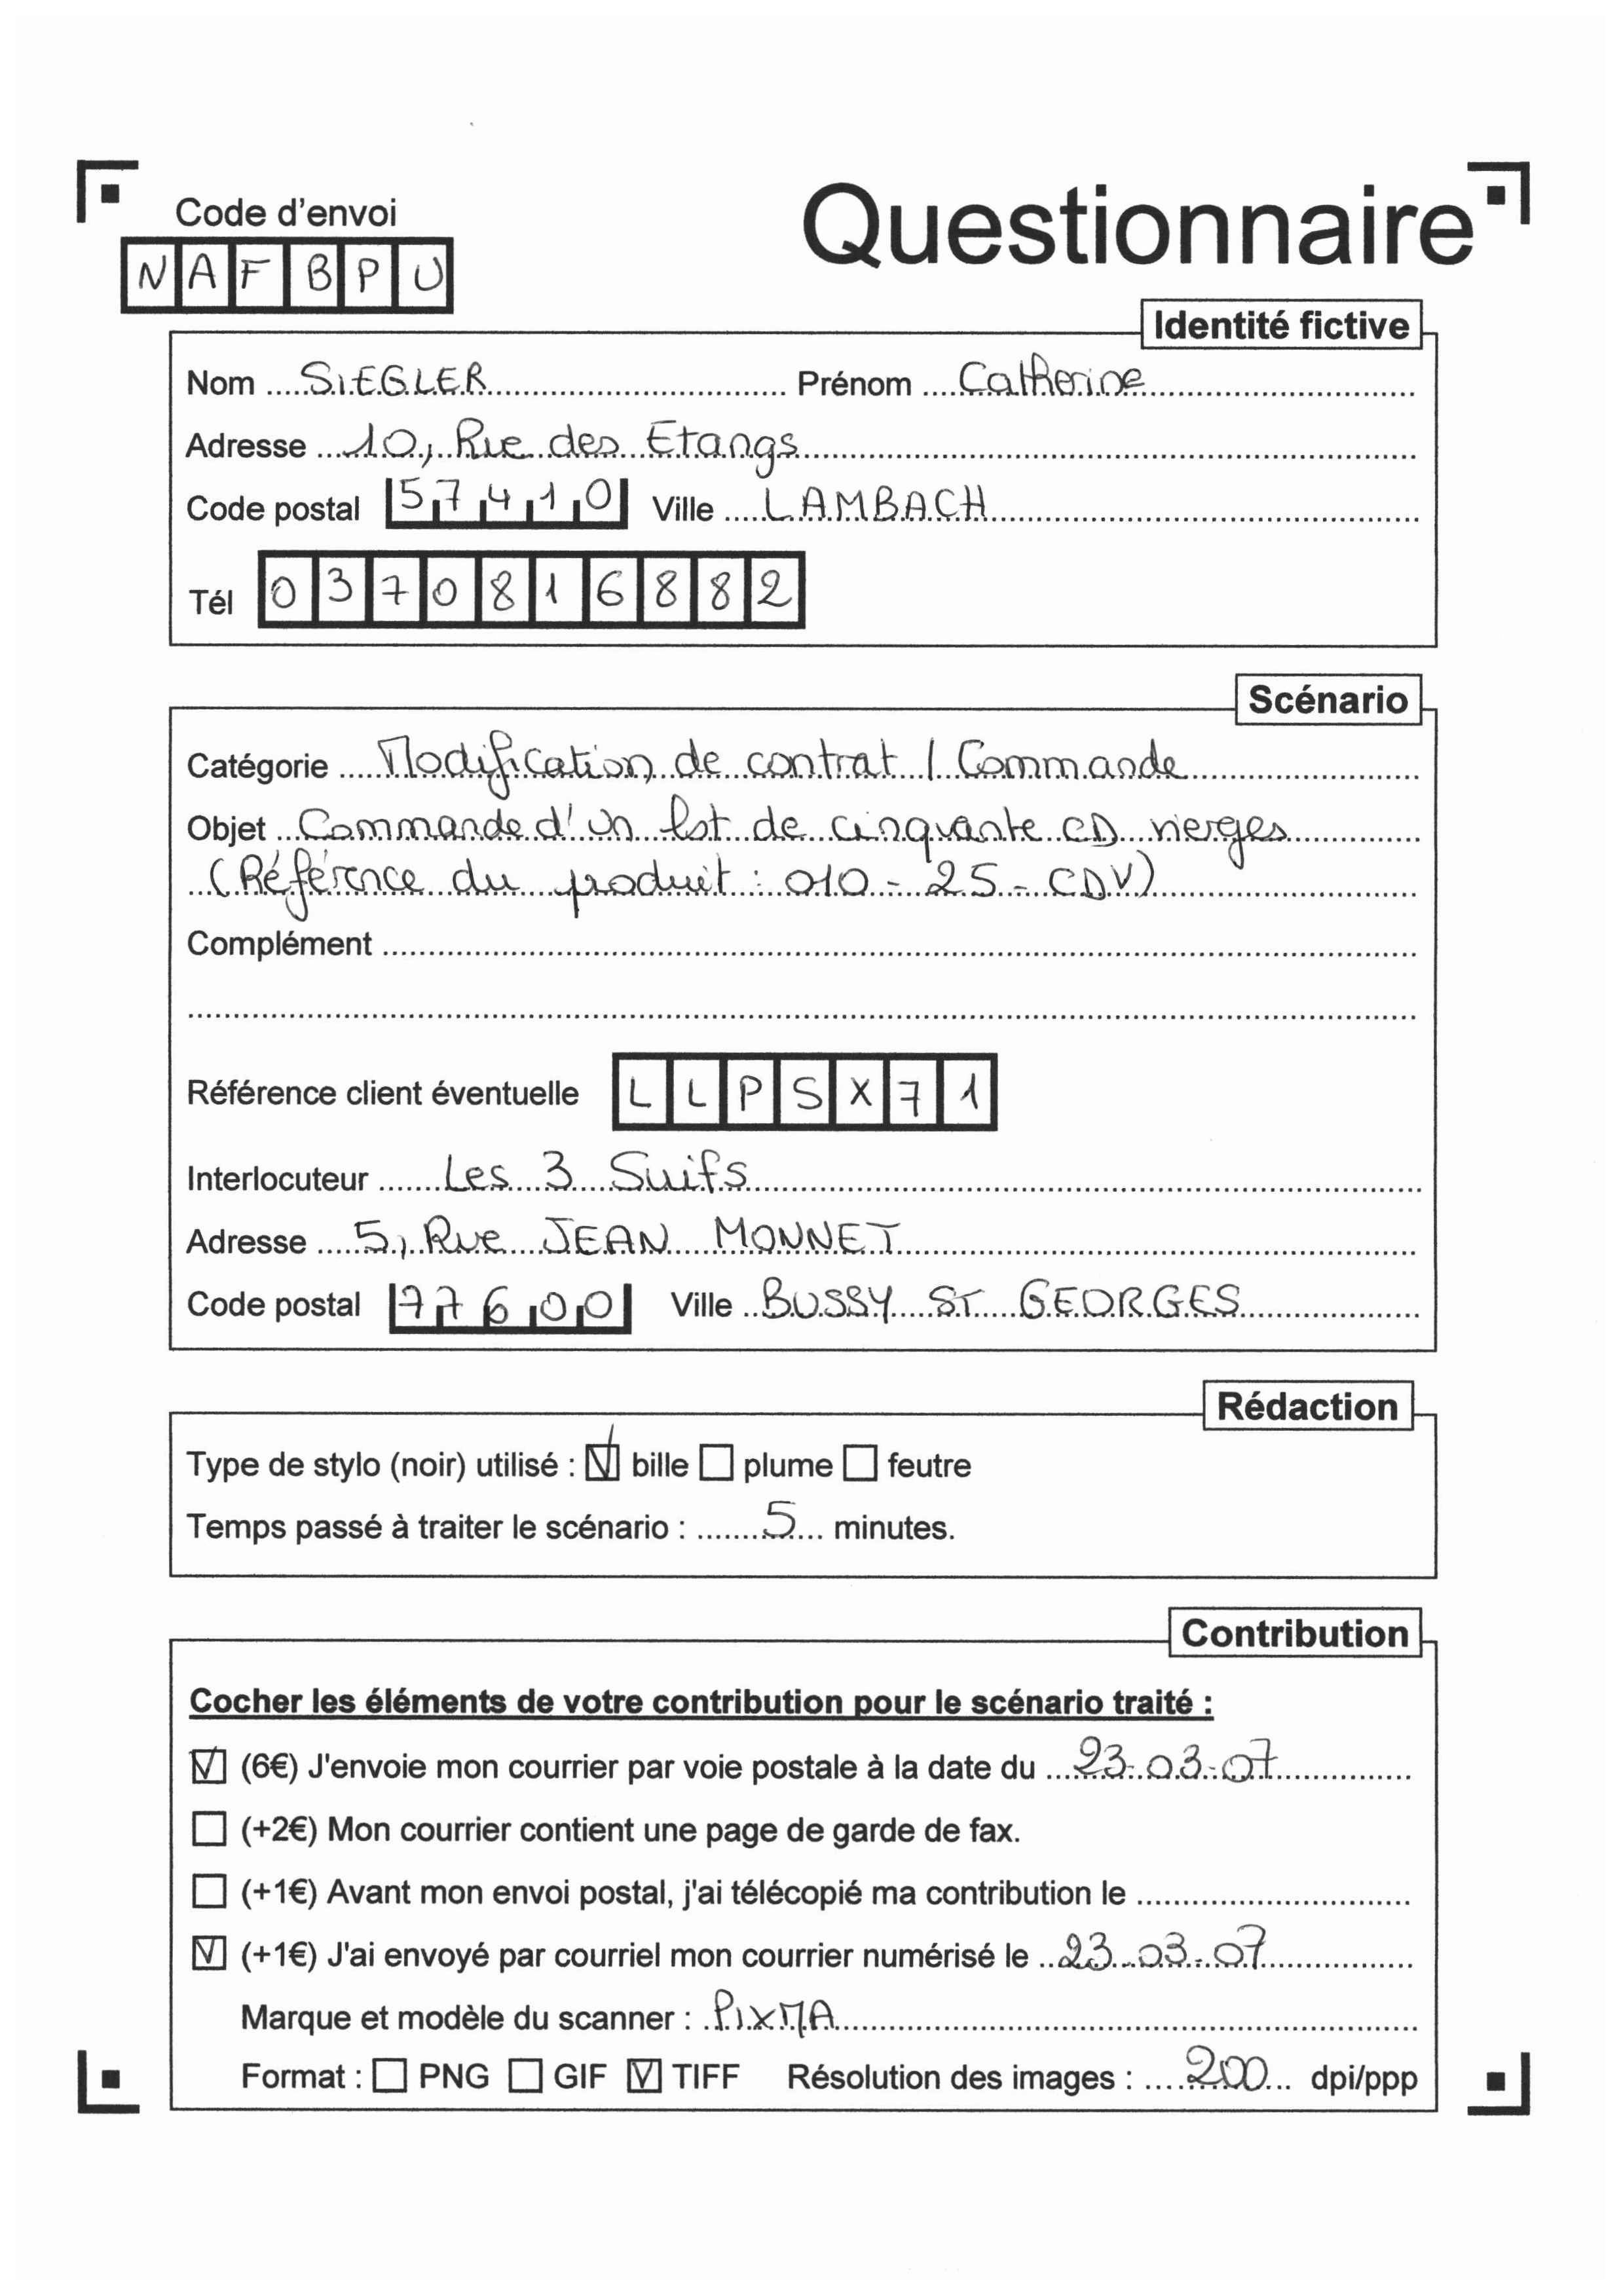 Code d'envoi
Questionnaire
NAFBPU
Identité fictive
Nom SIEGLER Prénom Catherine
Adresse 10, Rue des Etangs
Code postal 57410 Ville LAMBACH
Tél 0370816882
Scénario
Catégorie Modification de contrat / Commande
Objet Commande d'un lot de cinquante CD vierges
(Référence du produit : 010-25-CDV)
Complément
Référence client éventuelle LLPSX71
Interlocuteur Les 3 Suifs
Adresse 5, Rue JEAN MONNET
Code postal 77600 Ville BUSSY ST GEORGES
Rédaction
Type de stylo (noir) utilisé : ☑ bille ☐ plume ☐ feutre
Temps passé à traiter le scénario : 5 minutes.
Contribution
Cocher les éléments de votre contribution pour le scénario traité :
☑ (6€) J'envoie mon courrier par voie postale à la date du 23-03-07
☐ (+2€) Mon courrier contient une page de garde de fax.
☐ (+1€) Avant mon envoi postal, j'ai télécopié ma contribution le
☑ (+1€) J'ai envoyé par courriel mon courrier numérisé le 23-03-07
Marque et modèle du scanner : PIXMA
Format : ☐ PNG ☐ GIF ☑ TIFF Résolution des images : 200 dpi/ppp